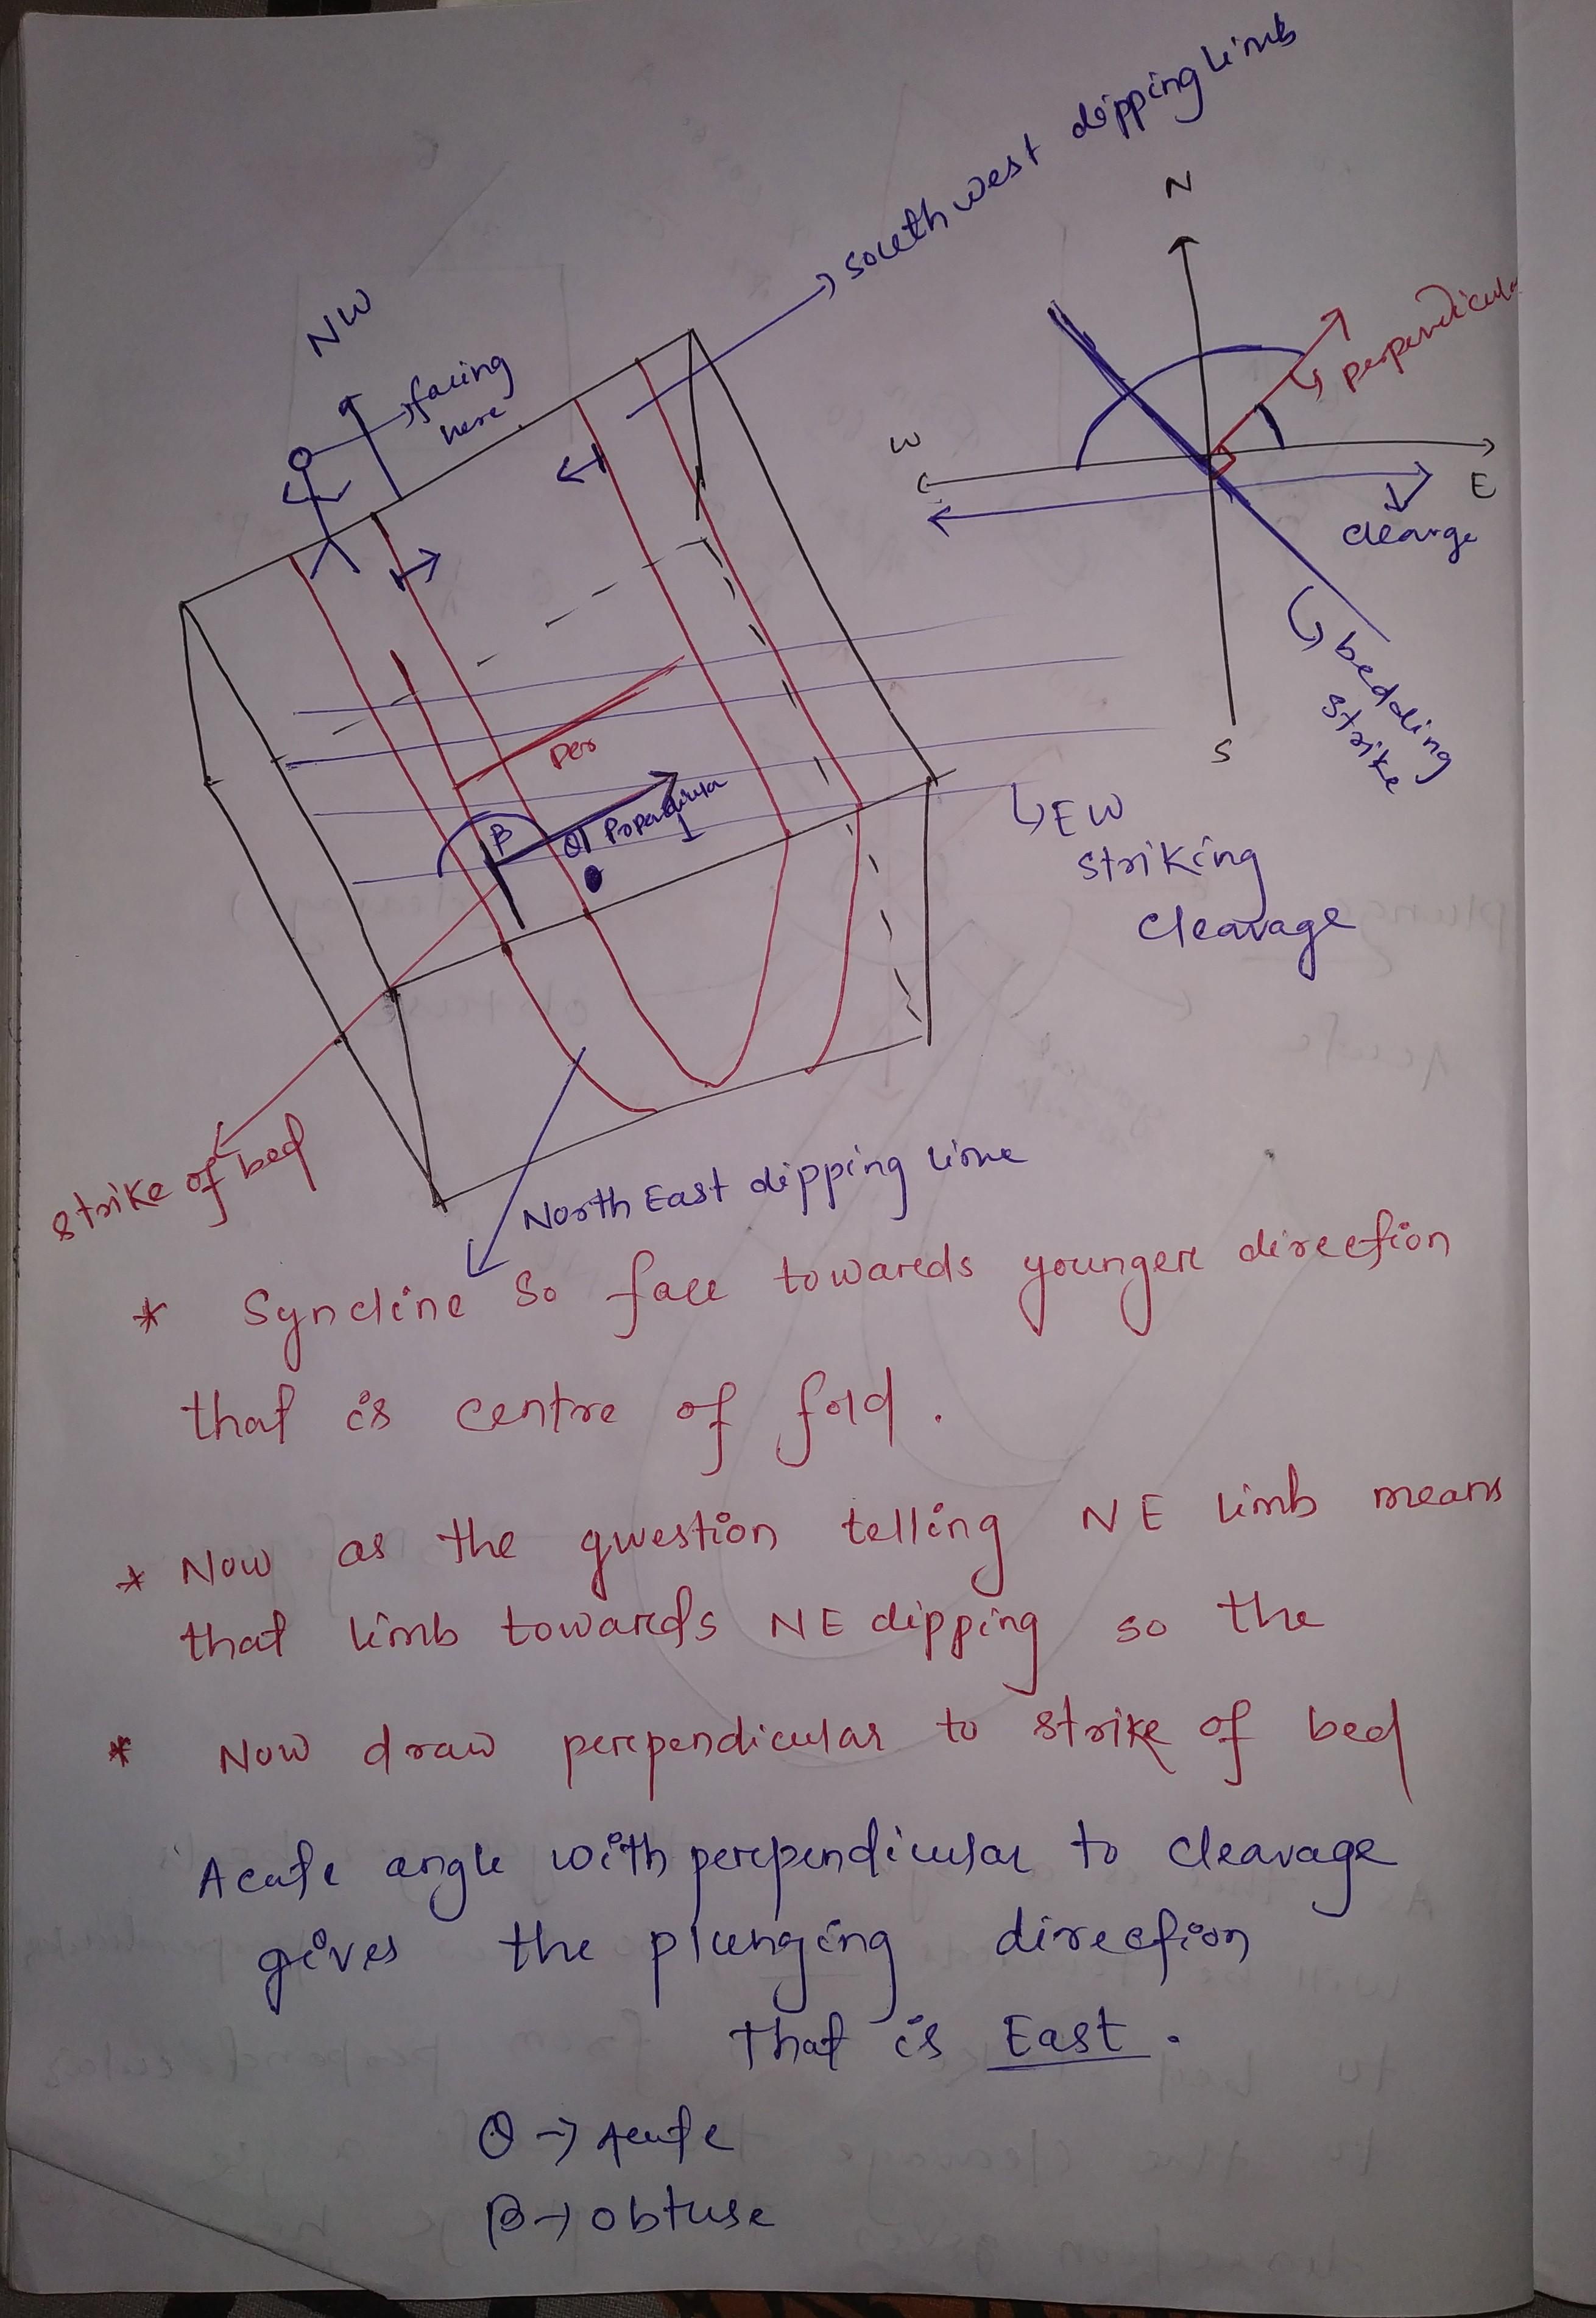 south west dipping limb
NW
facing
here
N
perpendicular
W
E
cleavge
bedding
strike
S
per
β
θ
Perpendicular
1
EW
striking
cleavage
strike of bed
North East dipping lime
* Syncline So face towareds youngere direction
that is centre of fold.
* Now as the qwestion telling NE limb means
that limb towareds NE dipping so the
* Now draw perependicular to strike of bed
Acute angle with perependicular to cleavage
gives the plunging direction
that is East.
θ → Acute
β → obtuse